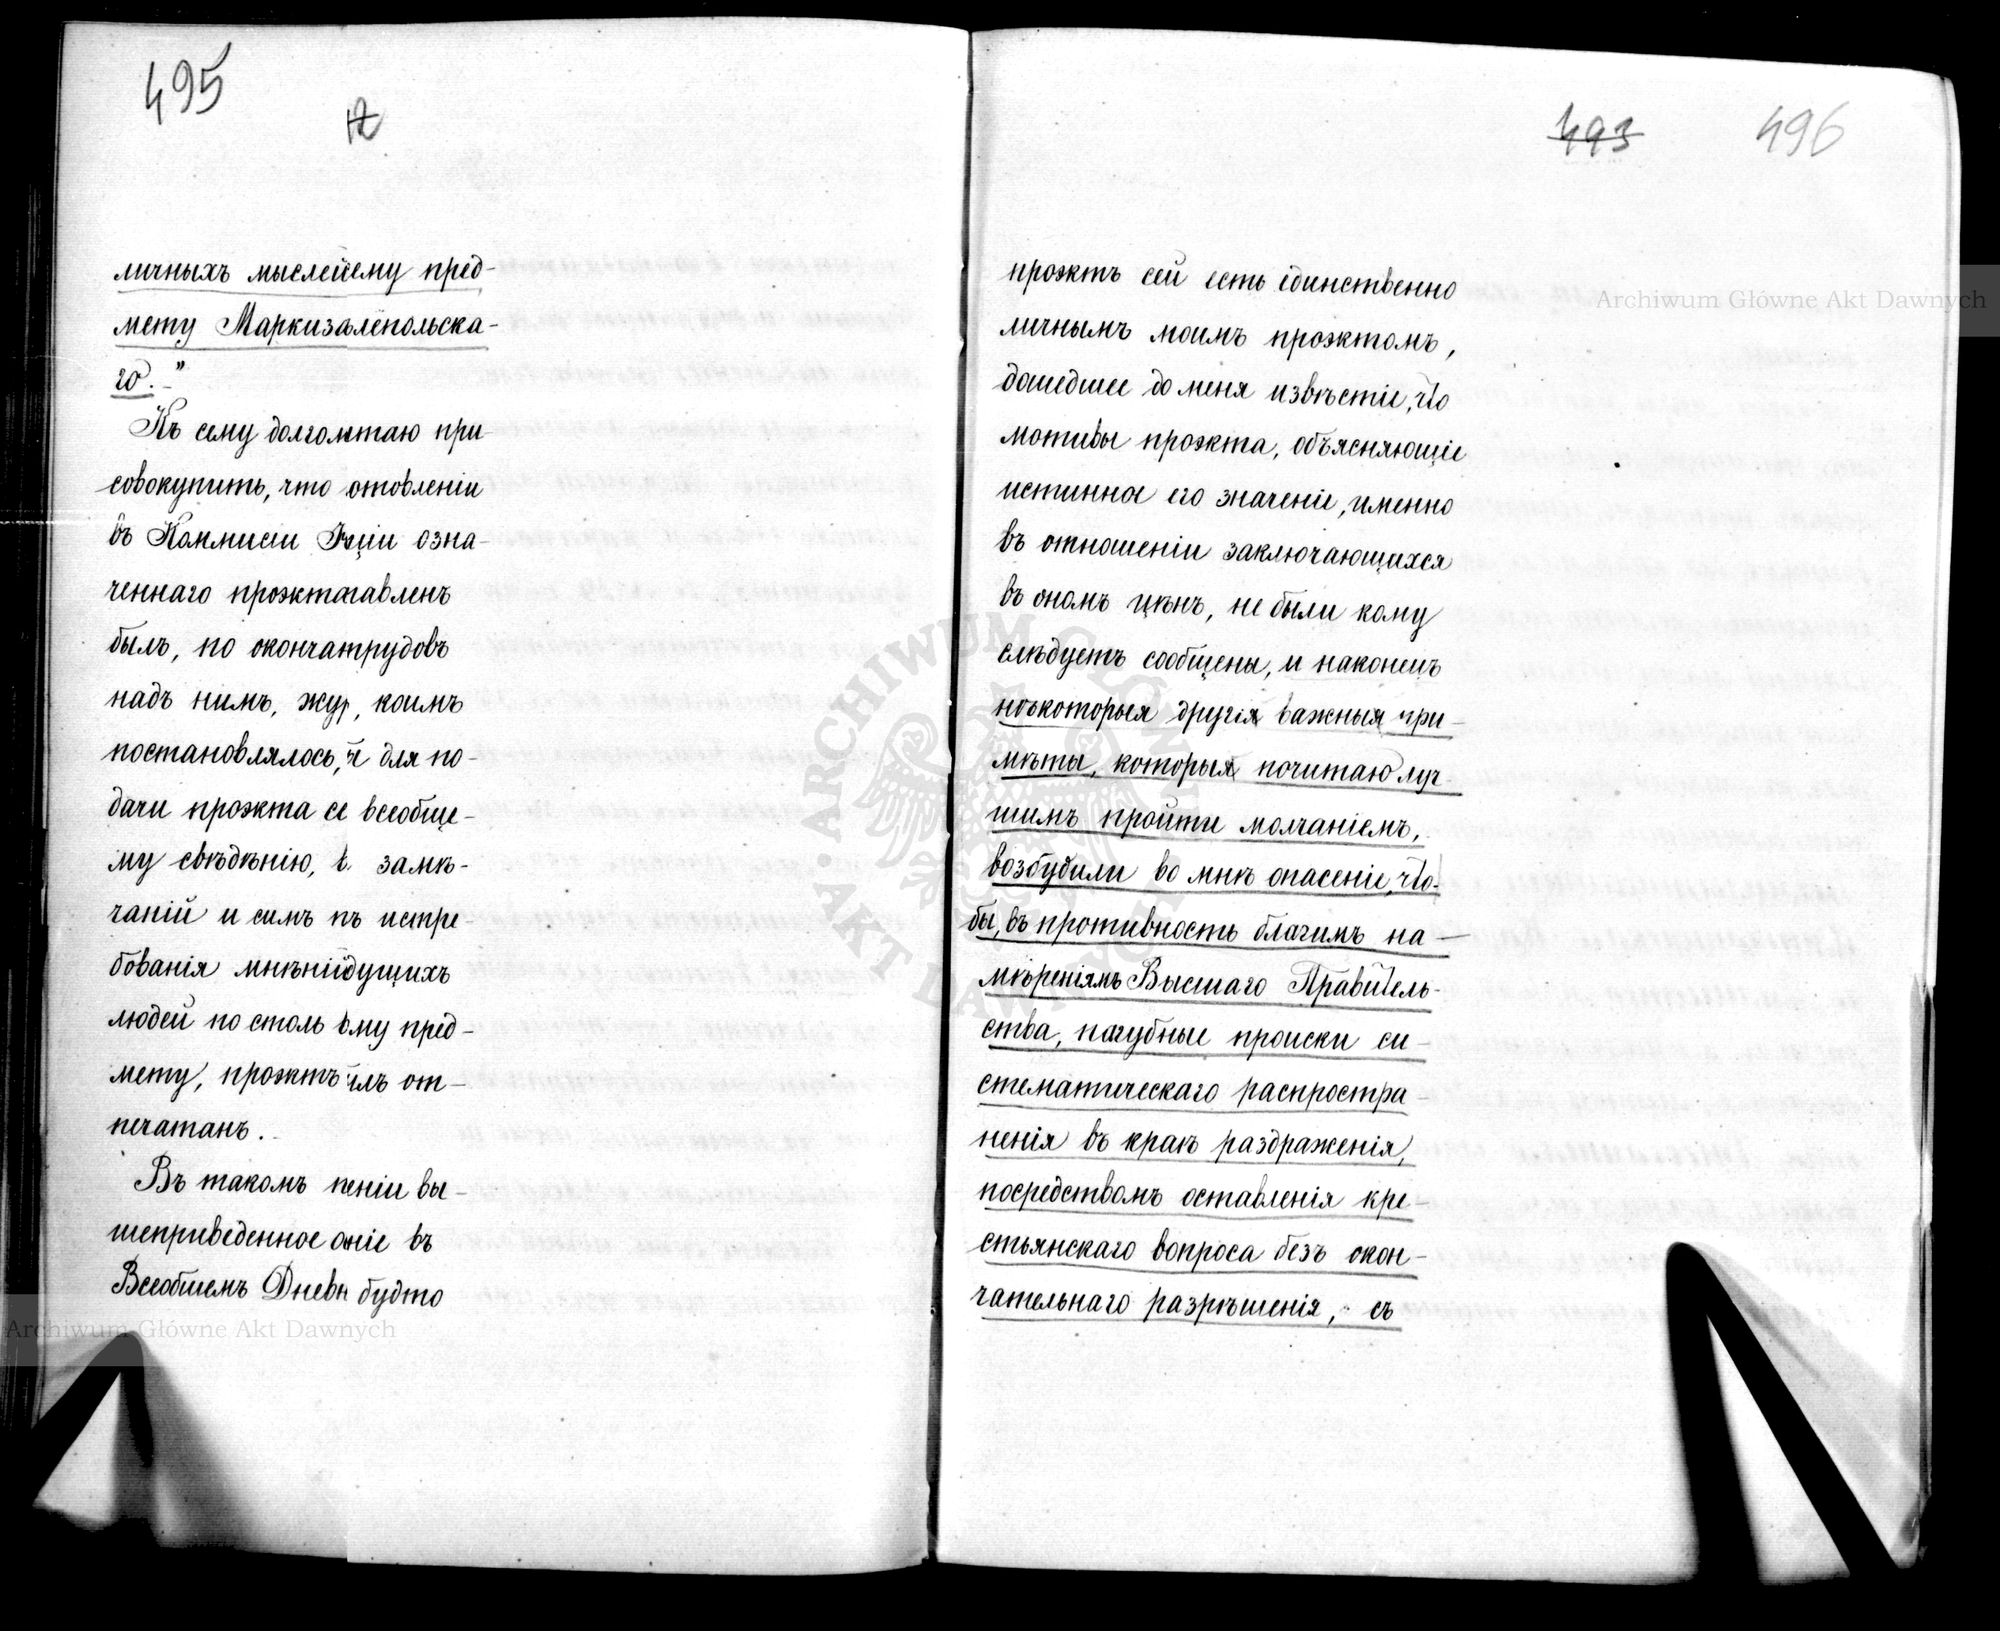 495
12
личныхъ мыслейему пред-
мету Маркизалепольска-
го."
Къ сему долгомтаю при
совокупить, что отовленіи
въ Коммисіи Юціи озна-
ченнаго проэктагавленъ
былъ, по окончатрудовъ
надъ нимъ, жур, коимъ
постановлялось, для по-
дачи проэкта се всеобще-
му свѣдѣнію, в. замѣ-
чаній и симъ пъ истре-
бованія мнѣніідущихъ
людей по столь ому пред-
мету, проэктъ илъ от-
печатанъ.
Въ такомъ пеніи вы-
шеприведенное оніе въ
Всеобщемъ Дневн будто
493 496
проэктъ сей есть единственно
личнымъ моимъ проэктомъ,
дошедшее до меня извѣстіе, что
мотивы проэкта, объясняющіе
истинное его значеніе, именно
въ отношеніи заключающихся
въ ономъ цѣнъ, не были кому
слѣдуетъ сообщены, и наконецъ
нѣкоторыя другія важныя при-
мѣты, которыя почитаю луч-
шимъ пройти молчаніемъ,
возбудили во мнѣ опасеніе, что-
бы, въ противность благимъ на-
мѣреніямъ Высшаго Правитель-
ства, пагубные происки си-
стематическаго распростра-
ненія въ краѣ раздраженія,
посредствомъ оставленія кре-
стьянскаго вопроса безъ окон-
чательнаго разрѣшенія, съ
Archiwum Główne Akt Dawnych
Archiwum Główne Akt Dawnych
ARCHIWUM GŁÓWNE AKT DAWNYCH